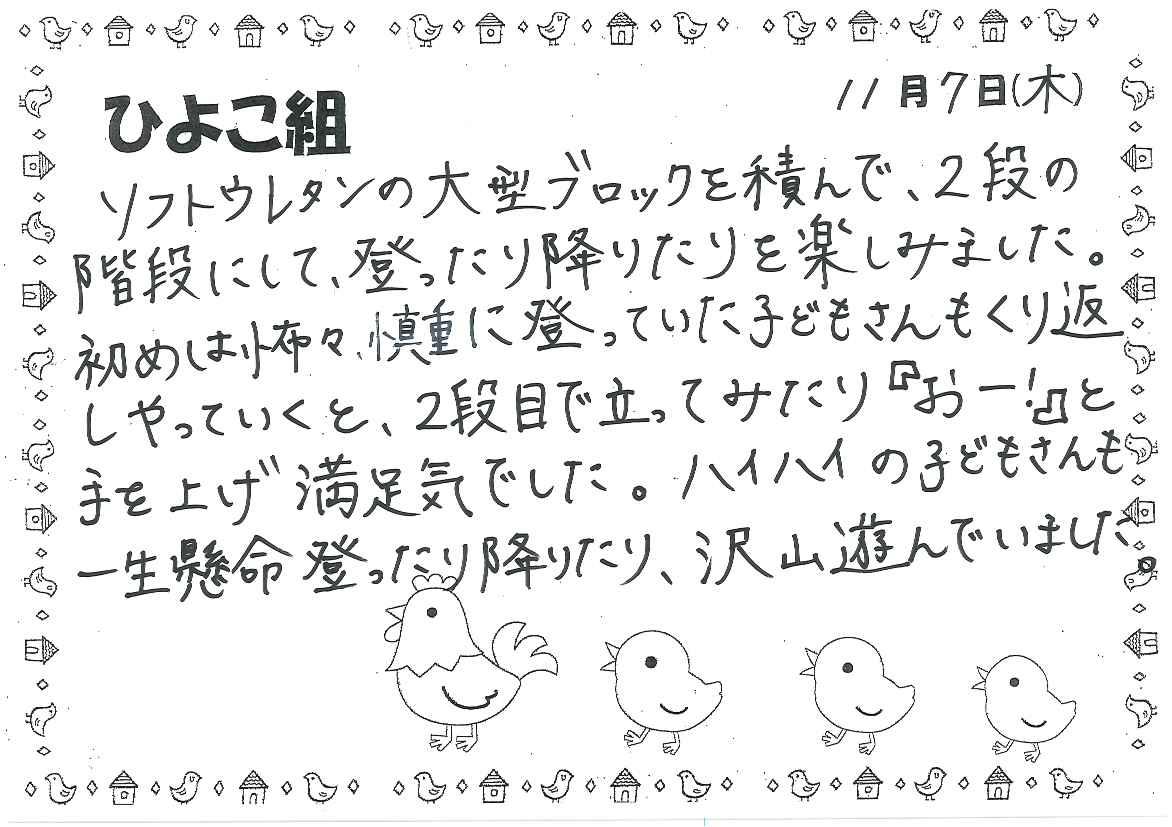 11月7日(木)
ひよこ組
ソフトウレタンの大型ブロックを積んで、2段の
階段にして、登ったり降りたりを楽しみました。
初めは怖々、慎重に登っていた子どもさんもくり返
しやっていくと、2段目で立ってみたり『おー!』と
手を上げ満足気でした。ハイハイの子どもさんも
一生懸命登ったり降りたり、沢山遊んでいました。